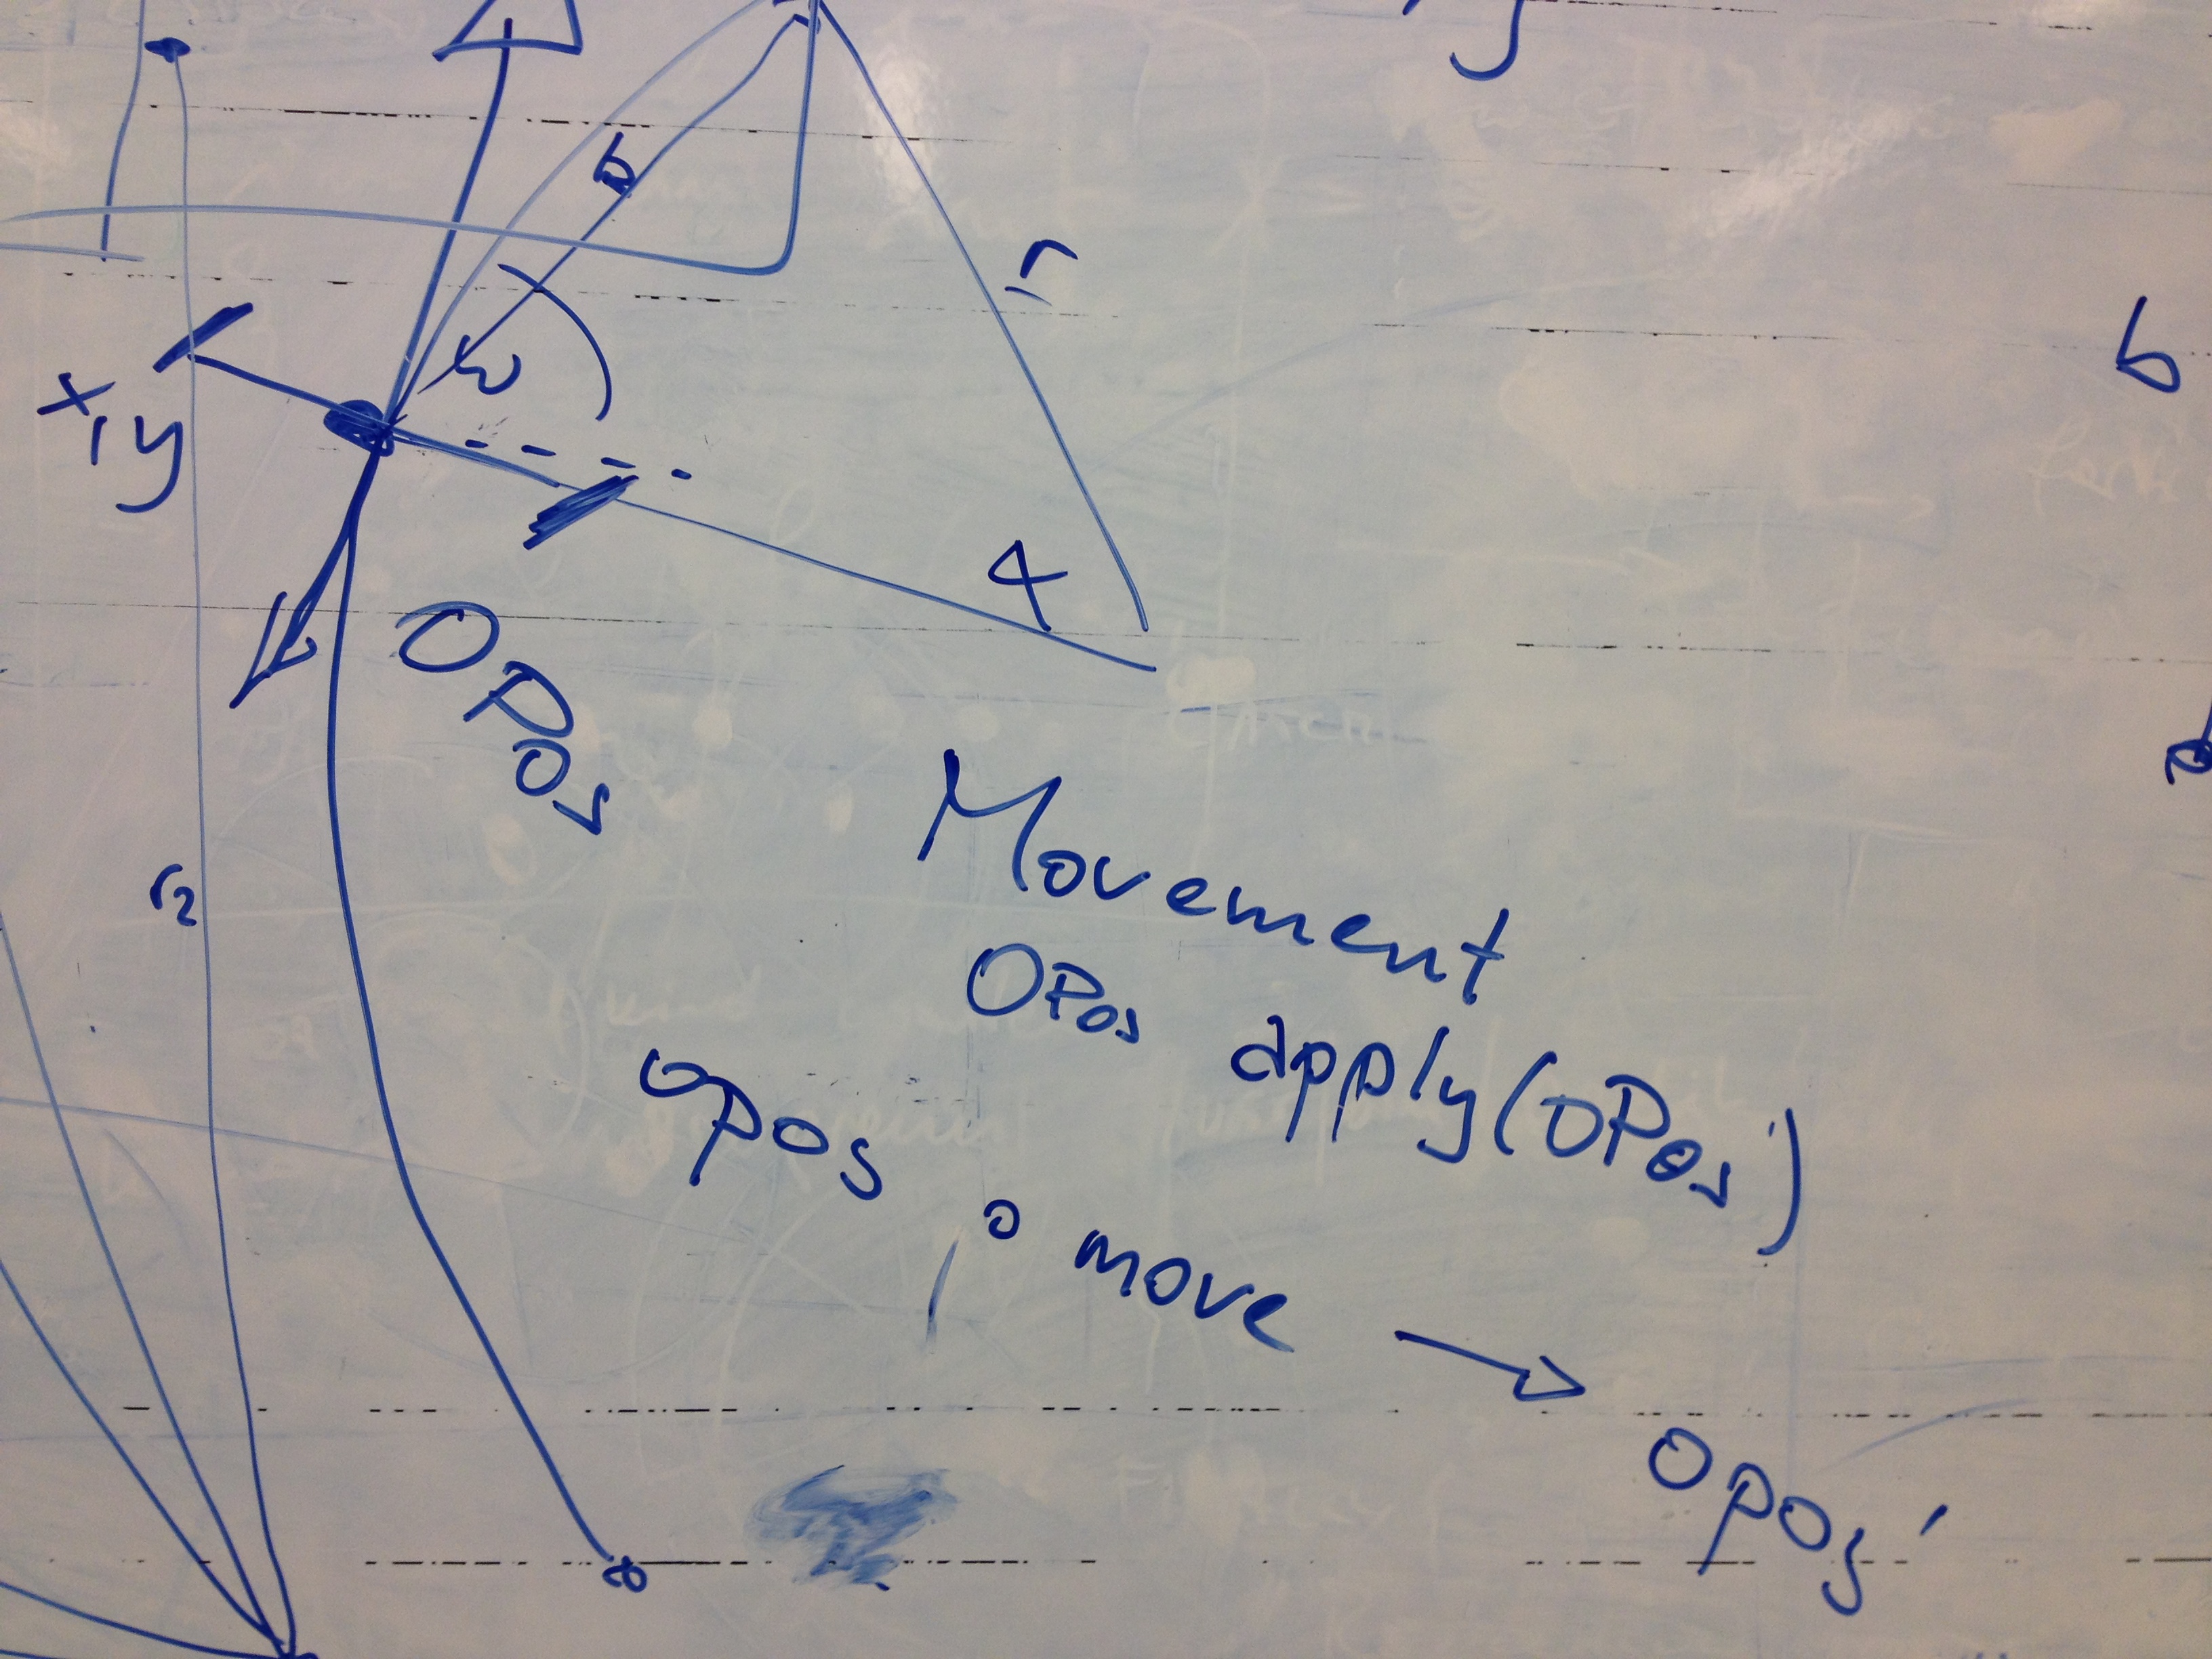 b
r
ω
x, y
b
α
OPos
Movement
OPos apply(OPos)
r2
opos o move → opos'